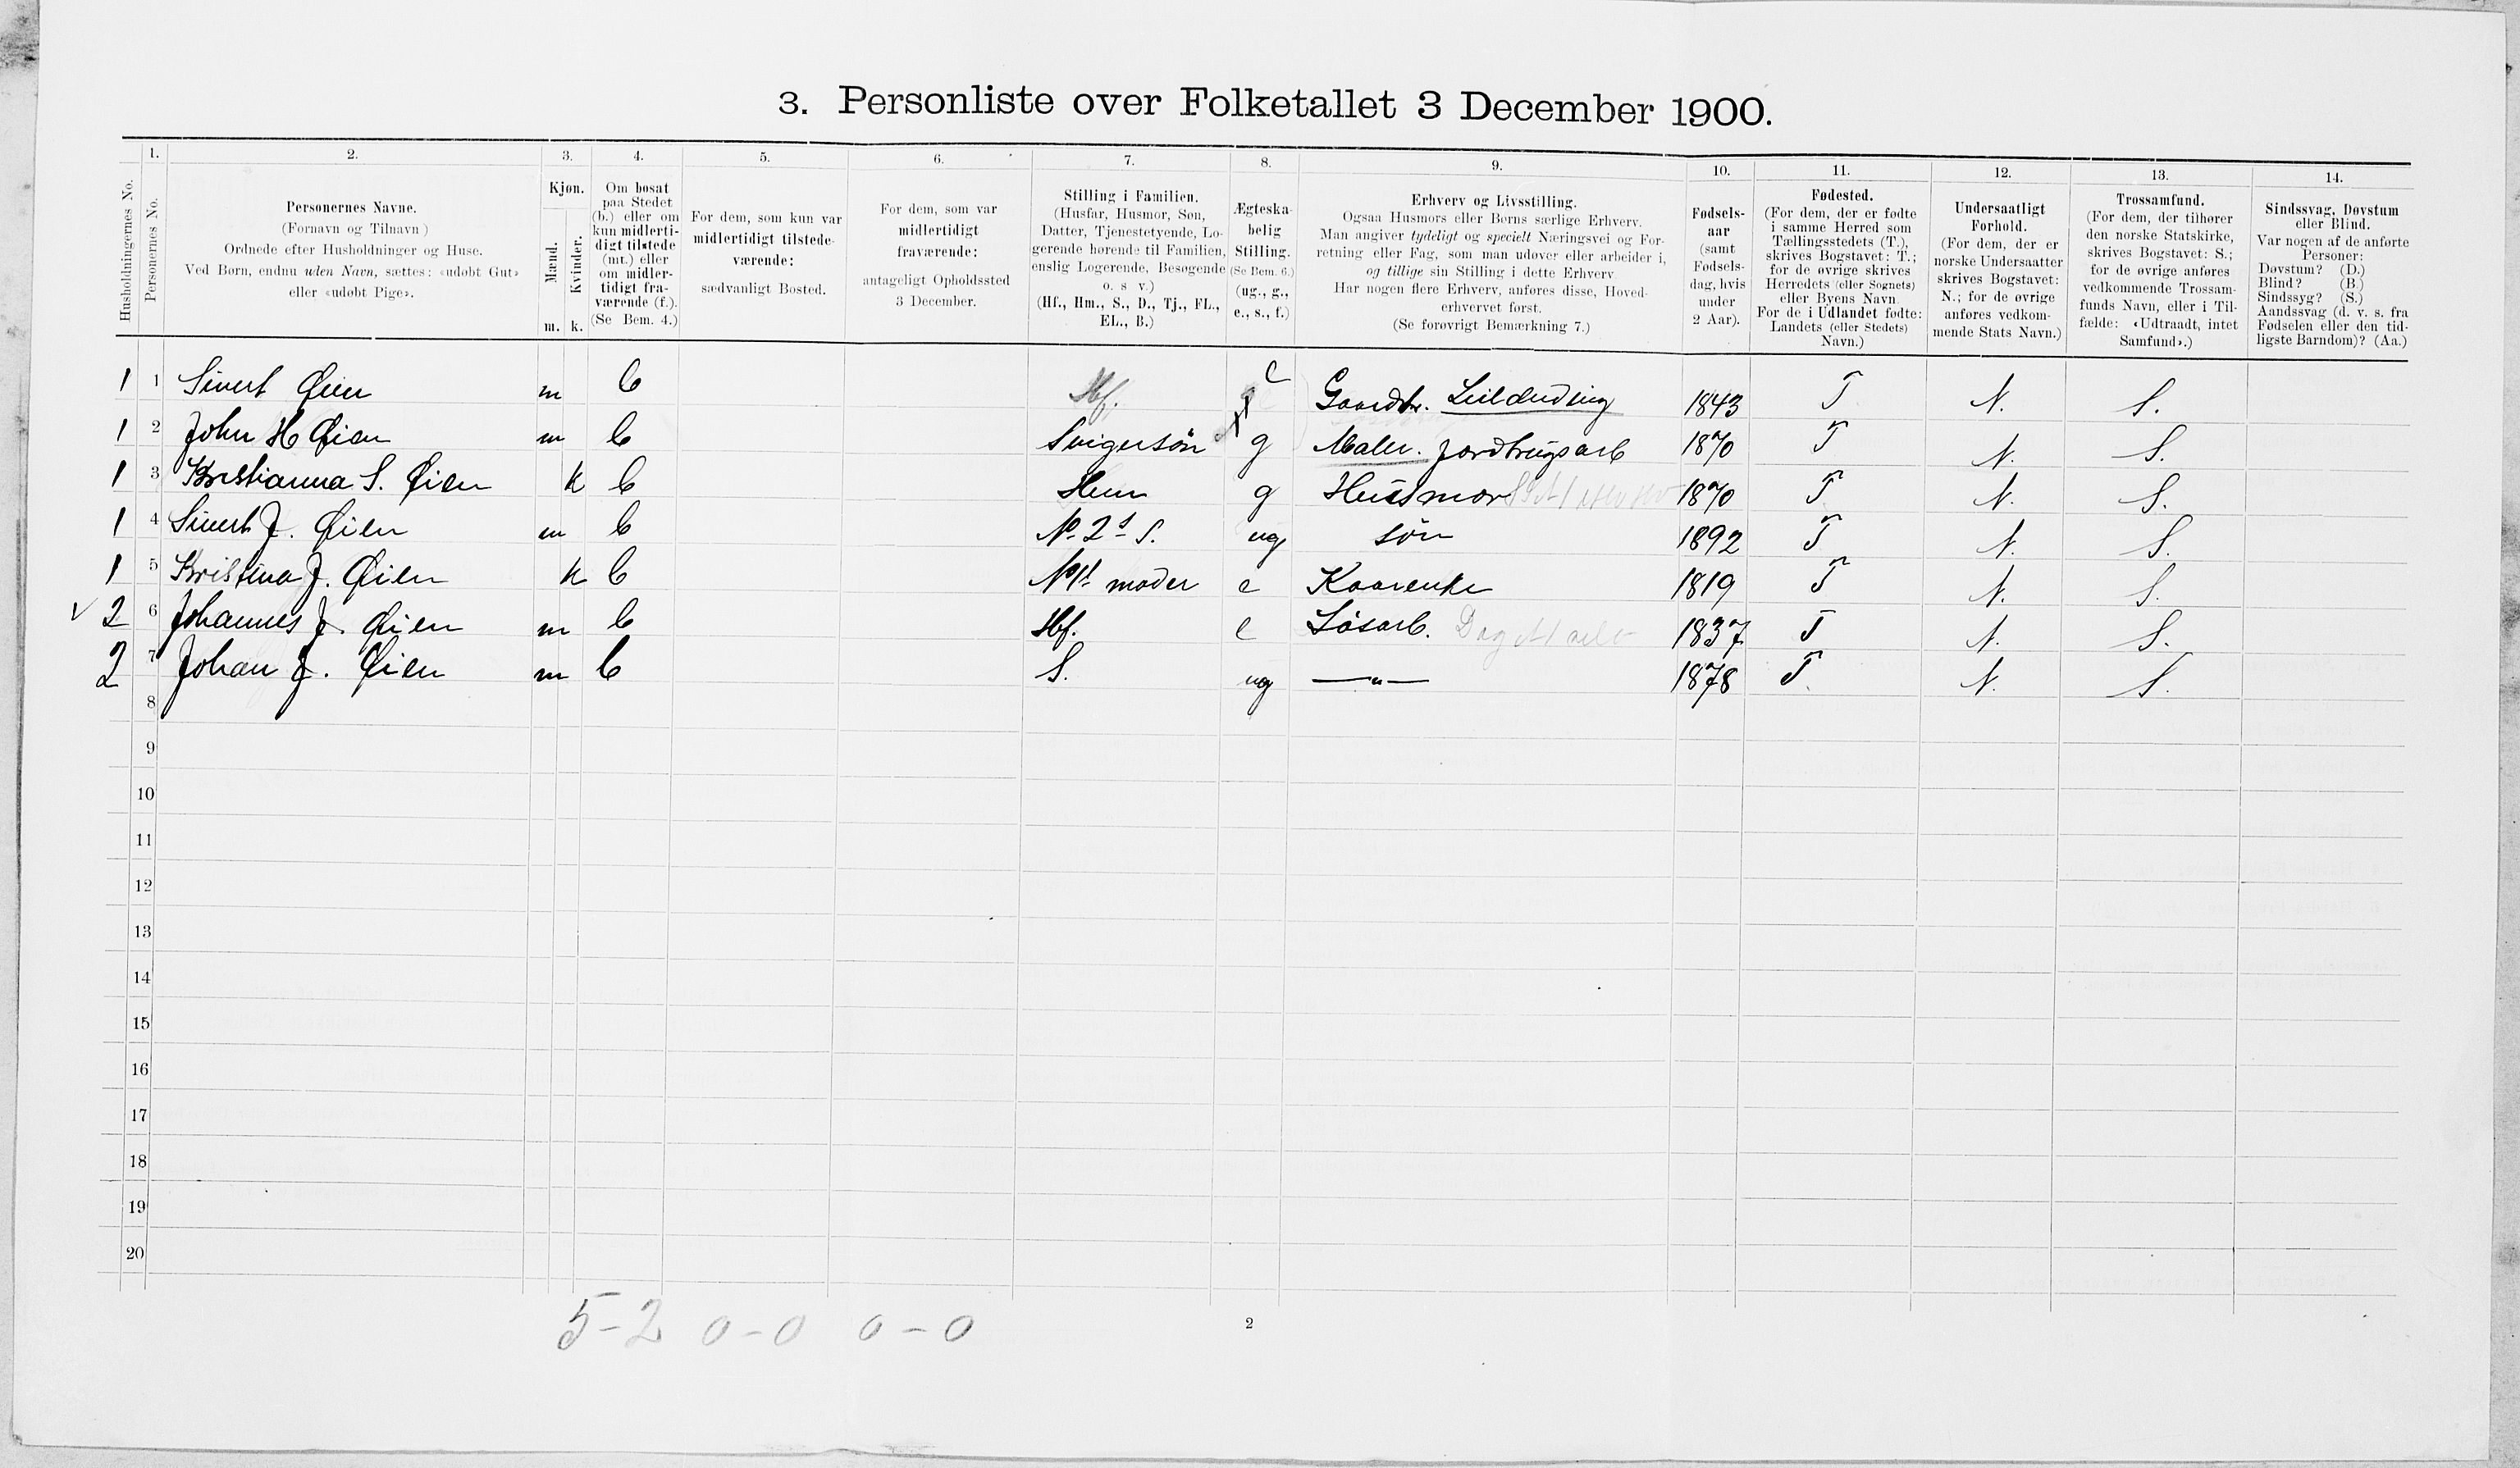 3. Personliste over Folketallet 3 December 1900.
1. 2. 3. 4. 5. 6. 7. 8. 9. 10. 11. 12. 13. 14.
Husholdningernes No.
Personernes No.
Personernes Navne.
(Fornavn og Tilnavn)
Ordnede efter Husholdninger og Huse.
Ved Børn, endnu uden Navn, sættes: «udøbt Gut»
eller «udøbt Pige».
Kjøn.
Mænd.
Kvinder.
m. k.
Om bosat
paa Stedet
(b.) eller om
kun midlerti-
digt tilstede
(mt.) eller
om midler-
tidigt fra-
værende (f.).
(Se Bem. 4.)
For dem, som kun var
midlertidigt tilstede-
værende:
sædvanligt Bosted.
For dem, som var
midlertidigt
fraværende:
antageligt Opholdssted
3 December.
Stilling i Familien.
(Husfar, Husmor, Søn,
Datter, Tjenestetyende, Lo-
gerende hørende til Familien,
enslig Logerende, Besøgende
o. s v.)
(Hf., Hm., S., D., Tj., FL.,
EL., B.)
Ægteska-
belig
Stilling.
(Se Bem. 6.)
(ug., g.,
e., s., f.)
Erhverv og Livsstilling.
Ogsaa Husmors eller Børns særlige Erhverv.
Man angiver tydeligt og specielt Næringsvei og For-
retning eller Fag, som man udøver eller arbeider i,
og tillige sin Stilling i dette Erhverv
Har nogen flere Erhverv, anføres disse, Hoved-
erhvervet først.
(Se forøvrigt Bemærkning 7.)
Fødsels-
aar
(samt
Fødsels-
dag, hvis
under
2 Aar).
Fødested.
(For dem, der er fødte
i samme Herred som
Tællingsstedets (T.),
skrives Bogstavet: T.;
for de øvrige skrives
Herredets (eller Sognets)
eller Byens Navn
For de i Udlandet fødte:
Landets (eller Stedets)
Navn.)
Undersaatligt
Forhold.
(For dem, der er
norske Undersaatter
skrives Bogstavet:
N.; for de øvrige
anføres vedkom-
mende Stats Navn.)
Trossamfund.
(For dem, der tilhører
den norske Statskirke,
skrives Bogstavet: S.;
for de øvrige anføres
vedkommende Trossam-
funds Navn, eller i Til-
fælde: «Udtraadt, intet
Samfund».)
Sindssvag, Døvstum
eller Blind.
Var nogen af de anførte
Personer:
Døvstum? (D.)
Blind? (B.)
Sindssyg? (S.)
Aandssvag (d. v. s. fra
Fødselen eller den tid-
ligste Barndom)? (Aa.)
1 1 Sivert Øien m b Hf. e Gaardbr. Leilending 1843 T N. S.
1 2 John H Øien m b Svigersøn g Maler. Jordbrugsarb 1870 T N. S.
1 3 Kristianna S. Øien k b Hm g Husmor 1870 T N. S.
1 4 Sivert J. Øien m b No 2s S. ug søn 1892 T N. S.
1 5 Kristina J. Øien k b No 1s moder e Kaarenke 1819 T N. S.
2 6 Johannes J. Øien m b Hf. e Løsarb. 1837 T N. S.
2 7 Johan J. Øien m b S. ug —"— 1878 T. N. S.
8
9
10
11
12
13
14
15
16
17
18
19
20
5-2 0-0 0-0
2